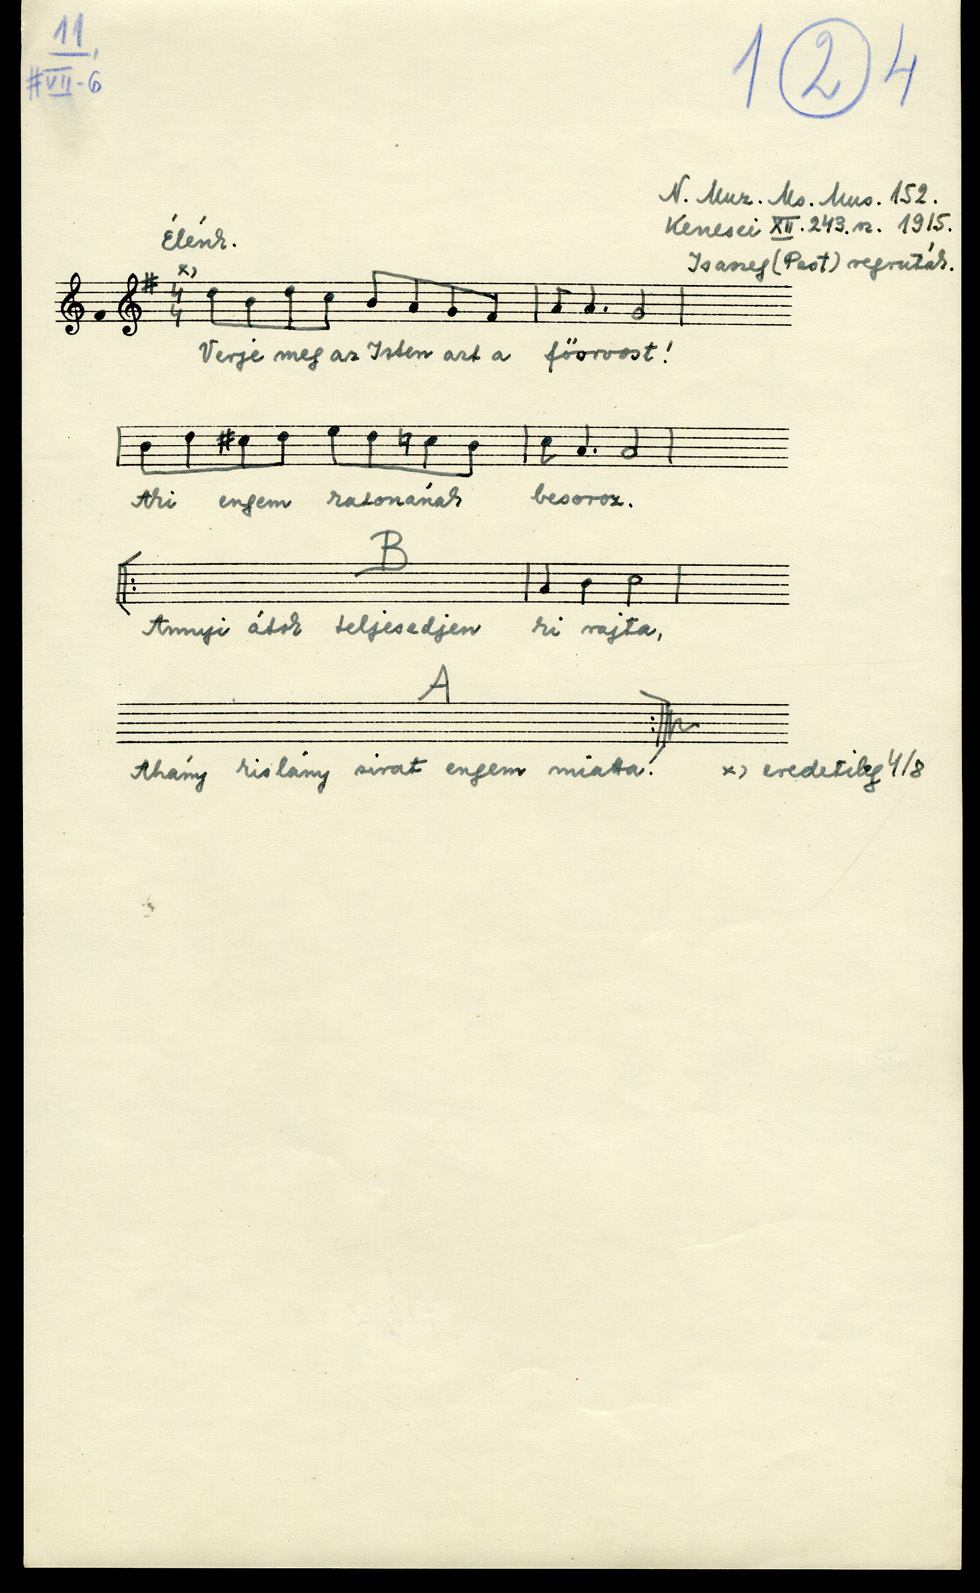 11,
# VII-6
1 2 4
N. Muz. Ms. Mus. 152.
Kenesei XII. 243. n. 1915.
Isaszeg (Pest) regruták.
Élénk.
x)
4
4
Verje meg az Isten azt a főorvost!
Aki engem katonának besoroz.
B
Annyi átok teljesedjen ki rajta,
A
Ahány kislány sirat engem miatta!
x) eredetileg 4/8